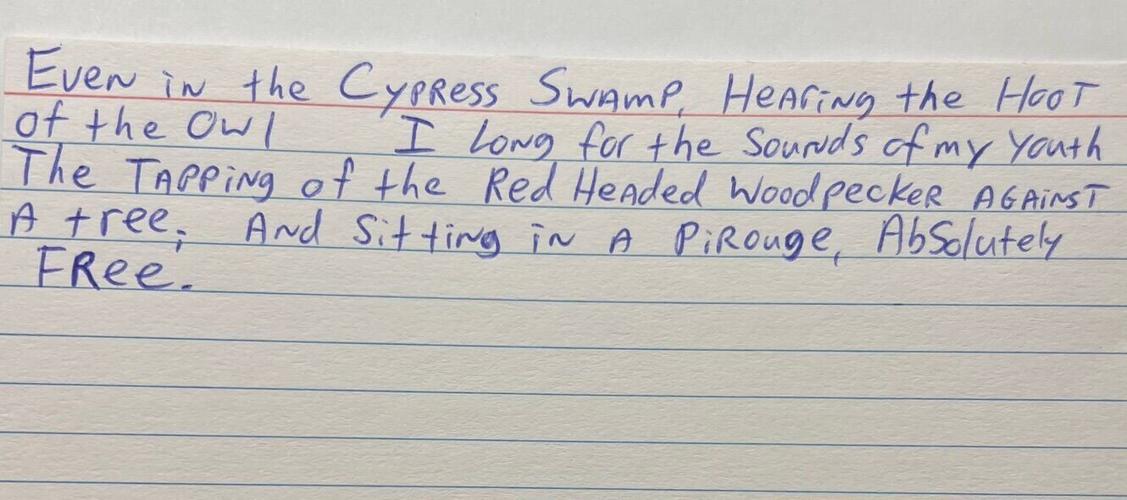 Even in the Cypress Swamp, Hearing the Hoot
of the Owl I Long for the Sounds of my Youth
The Tapping of the Red Headed Woodpecker Against
A tree; And Sitting in A Pirouge, Absolutely
Free.